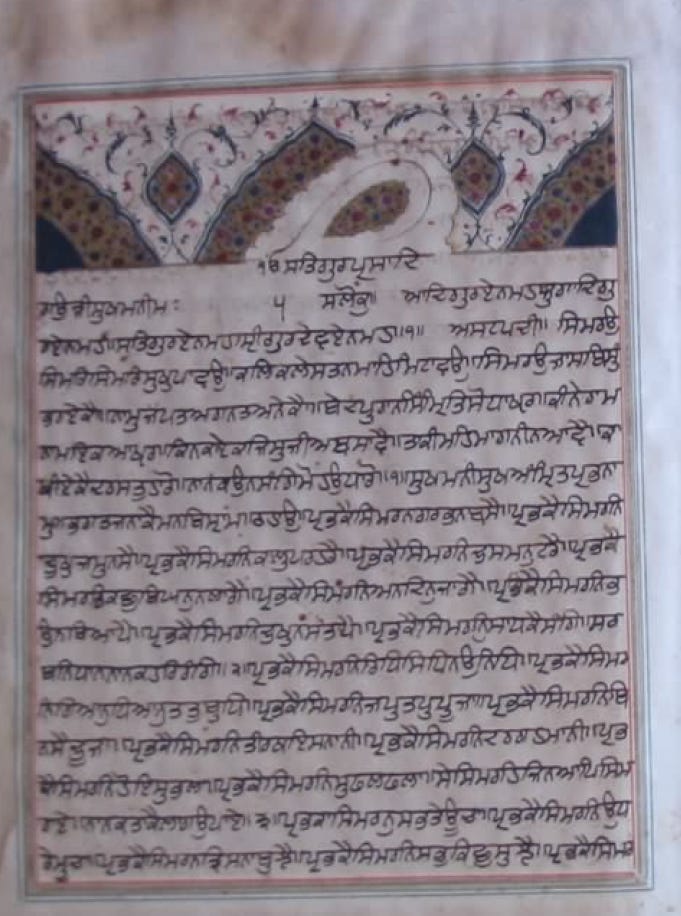 ੴ ਸਤਿਗੁਰਪ੍ਰਸਾਦਿ
ਗਉੜੀਸੁਖਮਨੀਮਃ ੫ ਸਲੋਕੁ॥ ਆਦਿਗੁਰਏਨਮਹਜੁਗਾਦਿਗੁ
ਰਏਨਮਹ॥ਸਤਿਗੁਰਏਨਮਹਸ੍ਰੀਗੁਰਦੇਵਏਨਮਹ॥੧॥ ਅਸਟਪਦੀ॥ ਸਿਮਰਉ
ਸਿਮਰਿਸਿਮਰਿਸੁਖੁਪਾਵਉ॥ਕਲਿਕਲੇਸਤਨਮਾਹਿਮਿਟਾਵਉ॥ਸਿਮਰਉਜਾਸਬਿਸੁੰ
ਭਰਏਕੈ॥ਨਾਮੁਜਪਤਅਗਨਤਅਨੇਕੈ॥ਬੇਦਪੁਰਾਨਸਿੰਮ੍ਰਿਤਿਸੋਧਾਖ੍ਯਰ॥ਕੀਨੇਰਾਮ
ਨਾਮਇਕਆਖ੍ਯਰ॥ਕਿਨਕਾਏਕਜਿਸੁਜੀਅਬਸਾਵੈ॥ਤਾਕੀਮਹਿਮਾਗਨੀਨਆਵੈ॥ਕਾ
ਖੀਏਕੈਦਰਸਤੁਹਾਰੋ॥ਨਾਨਕਉਨਸੰਗਿਮੋਹਿਉਧਾਰੋ॥੧॥ਸੁਖਮਨੀਸੁਖਅੰਮ੍ਰਿਤਪ੍ਰਭਨਾ
ਮੁ॥ਭਗਤਜਨਾਕੈਮਨਬਿਸ੍ਰਾਮ॥ਰਹਾਉ॥ਪ੍ਰਭਕੈਸਿਮਰਨਗਰਭਨਬਸੈ॥ਪ੍ਰਭਕੈਸਿਮਰਨਿ
ਦੂਖੁਜਮੁਨਸੈ॥ਪ੍ਰਭਕੈਸਿਮਰਨਿਕਾਲੁਪਰਹਰੈ॥ਪ੍ਰਭਕੈਸਿਮਰਨਿਦੁਸਮਨੁਟਰੈ॥ਪ੍ਰਭਕੈ
ਸਿਮਰਤਕਛੁਬਿਘਨੁਨਲਾਗੈ॥ਪ੍ਰਭਕੈਸਿਮਰਨਿਅਨਦਿਨੁਜਾਗੈ॥ਪ੍ਰਭਕੈਸਿਮਰਨਿਭ
ਉਨਬਿਆਪੈ॥ਪ੍ਰਭਕੈਸਿਮਰਨਿਦੁਖੁਨਸੰਤਾਪੈ॥ਪ੍ਰਭਕੈਸਿਮਰਨਿਸਾਧਕੈਸੰਗਿ॥ਸਰ
ਬਨਿਧਾਨਨਾਨਕਹਰਿਰੰਗਿ॥੨॥ਪ੍ਰਭਕੈਸਿਮਰਨਿਰਿਧਿਸਿਧਿਨਉਨਿਧਿ॥ਪ੍ਰਭਕੈਸਿਮਰ
ਨਿਗਿਆਨੁਧਿਆਨੁਤਤੁਬੁਧਿ॥ਪ੍ਰਭਕੈਸਿਮਰਨਿਜਪਤਪਪੂਜਾ॥ਪ੍ਰਭਕੈਸਿਮਰਨਿਬਿ
ਨਸੈਦੂਜਾ॥ਪ੍ਰਭਕੈਸਿਮਰਨਿਤੀਰਥਇਸਨਾਨੀ॥ਪ੍ਰਭਕੈਸਿਮਰਨਿਦਰਗਹਮਾਨੀ॥ਪ੍ਰਭ
ਕੈਸਿਮਰਨਿਹੋਇਸੁਭਲਾ॥ਪ੍ਰਭਕੈਸਿਮਰਨਿਸੁਫਲਫਲਾ॥ਸੇਸਿਮਰਹਿਜਿਨਆਪਿਸਿਮ
ਰਾਏ॥ਨਾਨਕਤਾਕੈਲਾਗਉਪਾਏ॥੩॥ਪ੍ਰਭਕਾਸਿਮਰਨੁਸਭਤੇਊਚਾ॥ਪ੍ਰਭਕੈਸਿਮਰਨਿਉਧ
ਰੇਮੂਚਾ॥ਪ੍ਰਭਕੈਸਿਮਰਨਿਤ੍ਰਿਸਨਾਬੁਝੈ॥ਪ੍ਰਭਕੈਸਿਮਰਨਿਸਭੁਕਿਛੁਸੁਝੈ॥ਪ੍ਰਭਕੈਸਿਮਰ